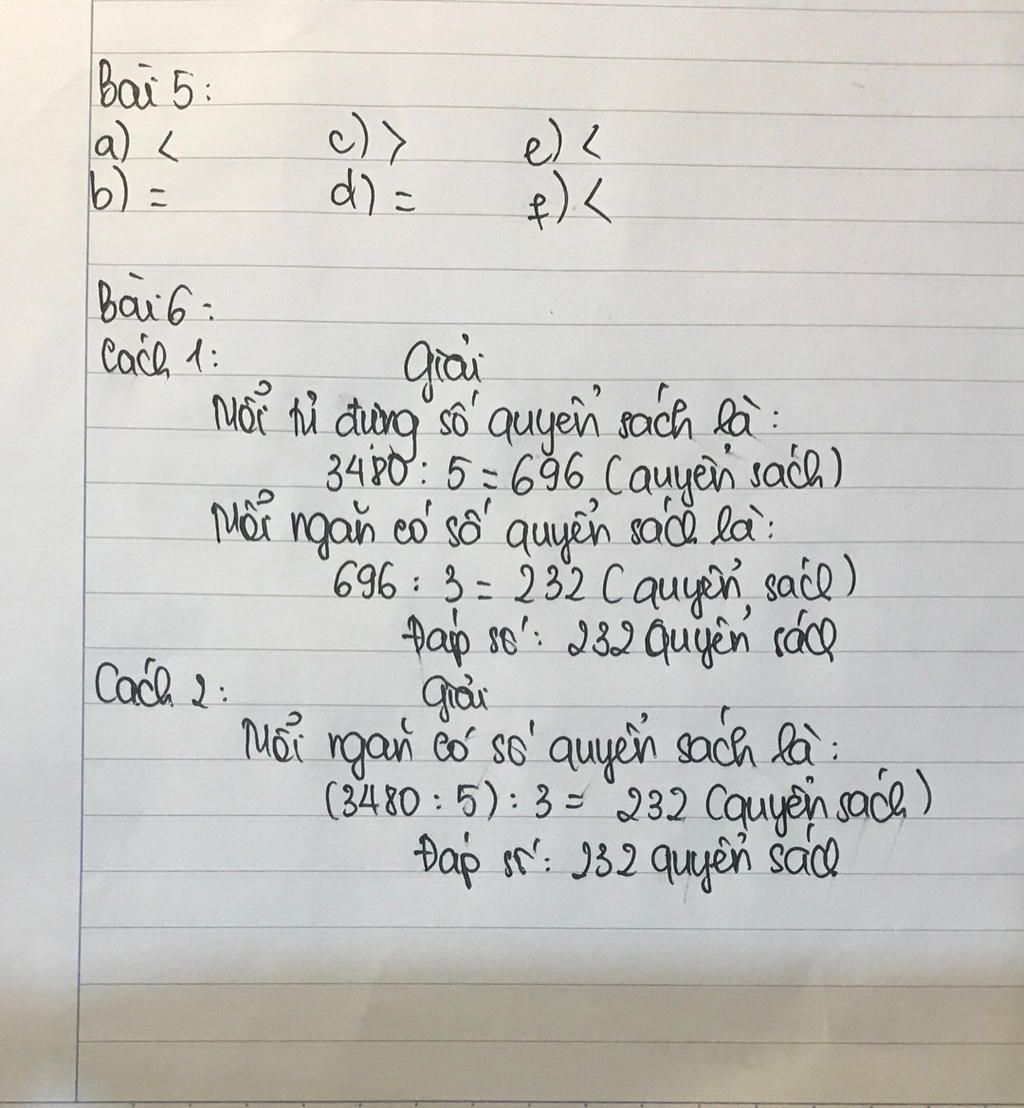 Bài 5:
a) < c) > e) <
b) = d) = f) <
Bài 6:
Cách 1: Giải
Mỗi tủ đựng số quyển sách là:
3480 : 5 = 696 (quyển sách)
Mỗi ngăn có số quyển sách là:
696 : 3 = 232 (quyển sách)
Đáp số: 232 quyển sách
Cách 2: Giải
Mỗi ngăn có số quyển sách là:
(3480 : 5) : 3 = 232 (quyển sách)
Đáp số: 232 quyển sách